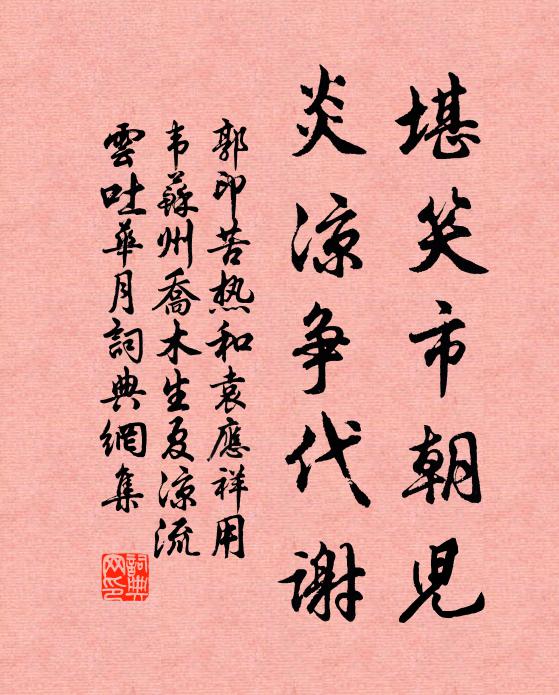 堪笑市朝児
炎凉争代谢
郭印苦热和袁應祥用
韦蘇州喬木生夏凉流
雲吐華月詞典網集
詞典网印